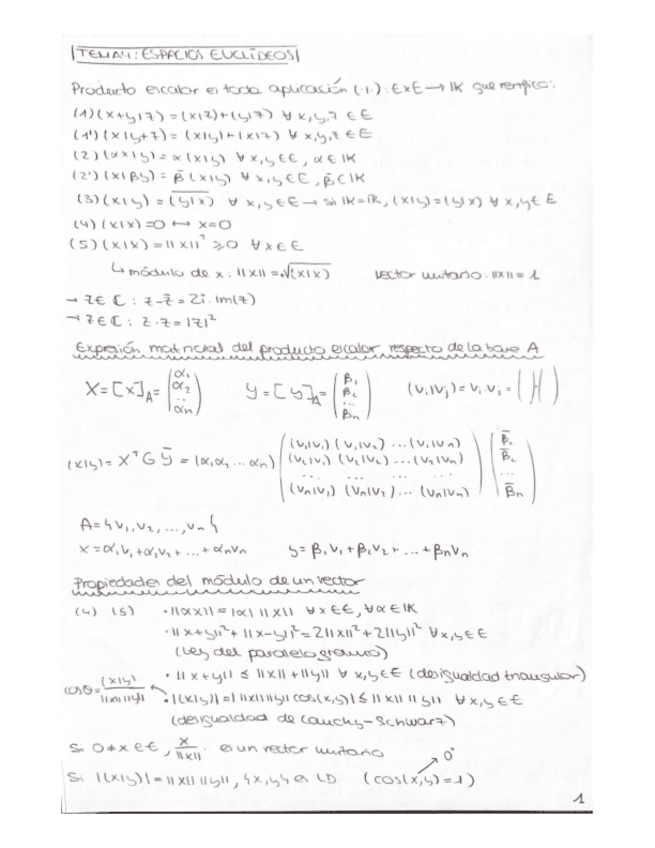 TEMA 4: ESPACIOS EUCLÍDEOS
Producto escalar es toda aplicación (·|·): E×E → IK que verifica:
(1) (x+y|z) = (x|z)+(y|z) ∀ x,y,z ∈ E
(1') (x|y+z) = (x|y)+(x|z) ∀ x,y,z ∈ E
(2) (αx|y) = α(x|y) ∀ x,y ∈ E, α ∈ IK
(2') (x|βy) = β̄(x|y) ∀ x,y ∈ E, β ∈ IK
(3) (x|y) = \overline{(y|x)} ∀ x,y ∈ E → si IK=IR, (x|y)=(y|x) ∀ x,y ∈ E
(4) (x|x)=0 ↔ x=0
(5) (x|x) = ||x||² ≥ 0 ∀ x ∈ E
↳ módulo de x: ||x|| = √(x|x) vector unitario: ||x|| = 1
→ z ∈ ℂ : z - z̄ = 2i·Im(z)
→ z ∈ ℂ : z·z = |z|²
Expresión matricial del producto escalar respecto de la base A
X = [x]_A = (α₁ α₂ ... αn) Y = [y]_A = (β₁ β₂ ... βn) (vᵢ|vⱼ) =
(x|y) = Xᵀ G Ȳ = (α₁ α₂ ... αn)
(v₁|v₁) (v₁|v₂) ... (v₁|vn) β̄₁
(v₂|v₁) (v₂|v₂) ... (v₂|vn) β̄₂
... ... ... ...
(vn|v₁) (vn|v₂) ... (vn|vn) β̄n
A = {v₁, v₂, ..., vn}
x = α₁v₁ + α₂v₂ + ... + αnvn y = β₁v₁ + β₂v₂ + ... + βnvn
Propiedades del módulo de un vector
(4) (5) · ||αx|| = |α| ||x|| ∀ x ∈ E, ∀ α ∈ IK
· ||x+y||² + ||x-y||² = 2||x||² + 2||y||² ∀ x,y ∈ E
(Ley del paralelogramo)
· ||x+y|| ≤ ||x|| + ||y|| ∀ x,y ∈ E (desigualdad triangular)
cosθ = (x|y) / ||x|| ||y|| · |(x|y)| = | ||x|| ||y|| cos(x,y)| ≤ ||x|| ||y|| ∀ x,y ∈ E
(desigualdad de Cauchy-Schwarz)
Si 0 ≠ x ∈ E, x/||x|| es un vector unitario
Si |(x|y)| = ||x|| ||y||, {x,y} es LD (cos(x,y) = 1) 0°
1